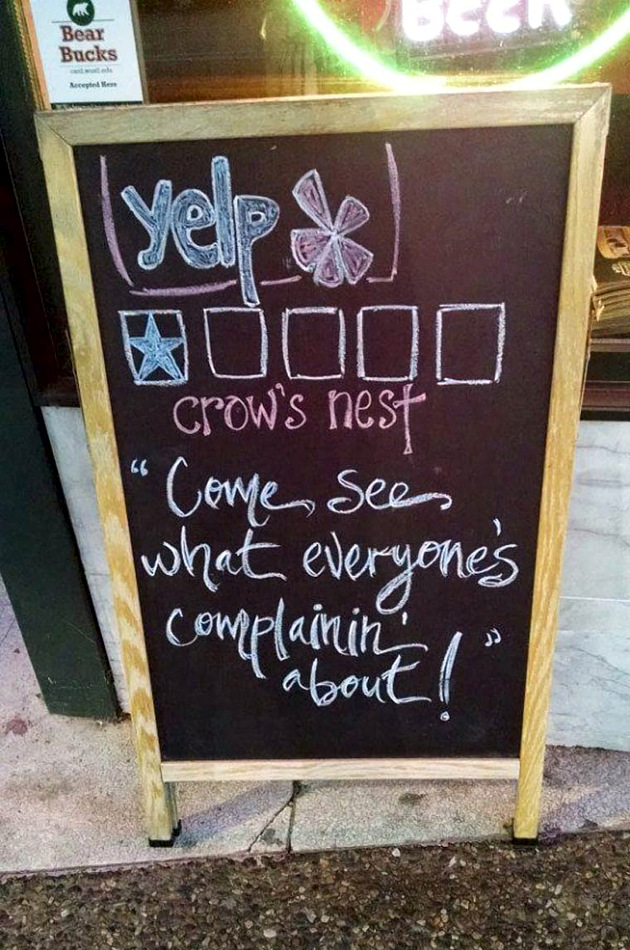 Bear
Bucks
Accepted Here
BEER
yelp
crow's nest
"Come see
what everyone's
complainin'
about!"